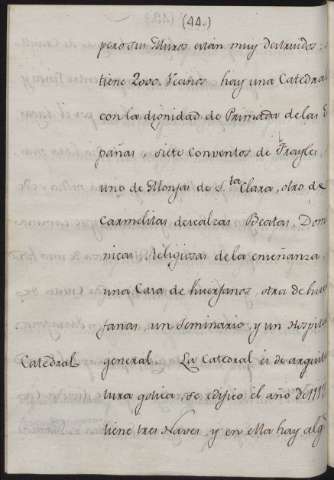 (44.)
pero sus Muros están muy destruidos:
tiene 2000. Vecinos hay una Catedral
con la dignidad de Primada de las Es
pañas, siete Conventos de Frayles
uno de Monjas de S.ta Clara, otro de
Carmelitas descalzas Beatas, Dom
nicas Religiosas de la enseñanza
una Casa de huerfanos, otra de huer
fanas, un Seminario, y un Hospital
Catedral general. La Catedral és de arquitec
tura gotica, se edificó el año de
tiene tres Naves, y en ella hay alg